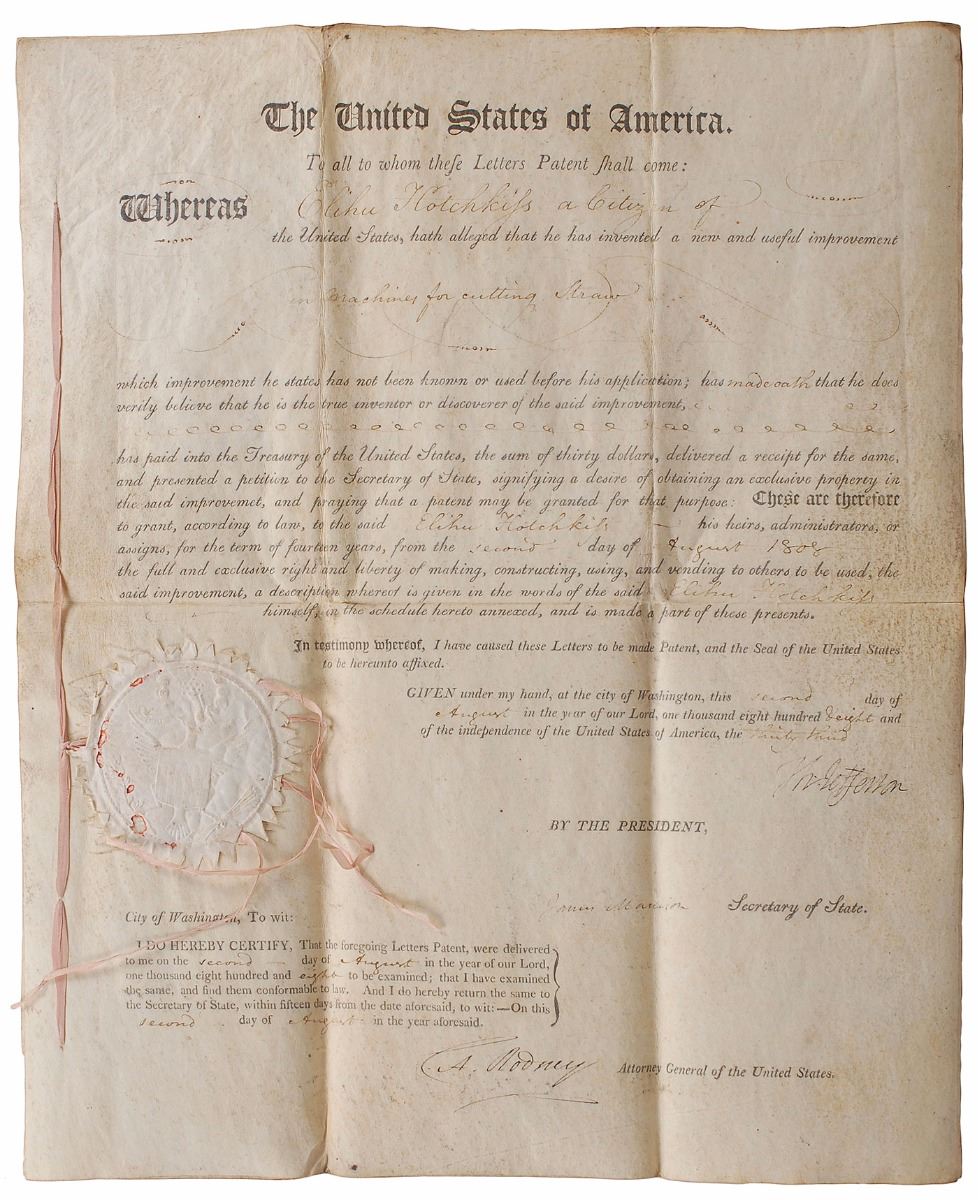 The United States of America.
To all to whom theſe Letters Patent ſhall come:
Whereas Elihu Hotchkiſs a Citizen of
the United States, hath alleged that he has invented a new and useful improvement
in machines for cutting Straw
which improvement he states has not been known or used before his application; has made oath that he does
verily believe that he is the true inventor or discoverer of the said improvement,
has paid into the Treasury of the United States, the sum of thirty dollars, delivered a receipt for the same,
and presented a petition to the Secretary of State, signifying a desire of obtaining an exclusive property in
the said improvemet, and praying that a patent may be granted for that purpose: These are therefore
to grant, according to law, to the said Elihu Hotchkiſs his heirs, administrators, or
assigns, for the term of fourteen years, from the second day of August 1808
the full and exclusive right and liberty of making, constructing, using, and vending to others to be used, the
said improvement, a description whereof is given in the words of the said Elihu Hotchkiſs
himself, in the schedule hereto annexed, and is made a part of these presents.
In testimony whereof, I have caused these Letters to be made Patent, and the Seal of the United States
to be hereunto affixed.
GIVEN under my hand, at the city of Washington, this second day of
August in the year of our Lord, one thousand eight hundred & eight and
of the independence of the United States of America, the thirty third
Th Jefferson
BY THE PRESIDENT,
James Madison Secretary of State.
City of Washington, To wit:
I DO HEREBY CERTIFY, That the foregoing Letters Patent, were delivered
to me on the second day of August in the year of our Lord,
one thousand eight hundred and eight to be examined; that I have examined
the same, and find them conformable to law. And I do hereby return the same to
the Secretary of State, within fifteen days from the date aforesaid, to wit:—On this
second day of August in the year aforesaid.
C A. Rodney Attorney General of the United States.